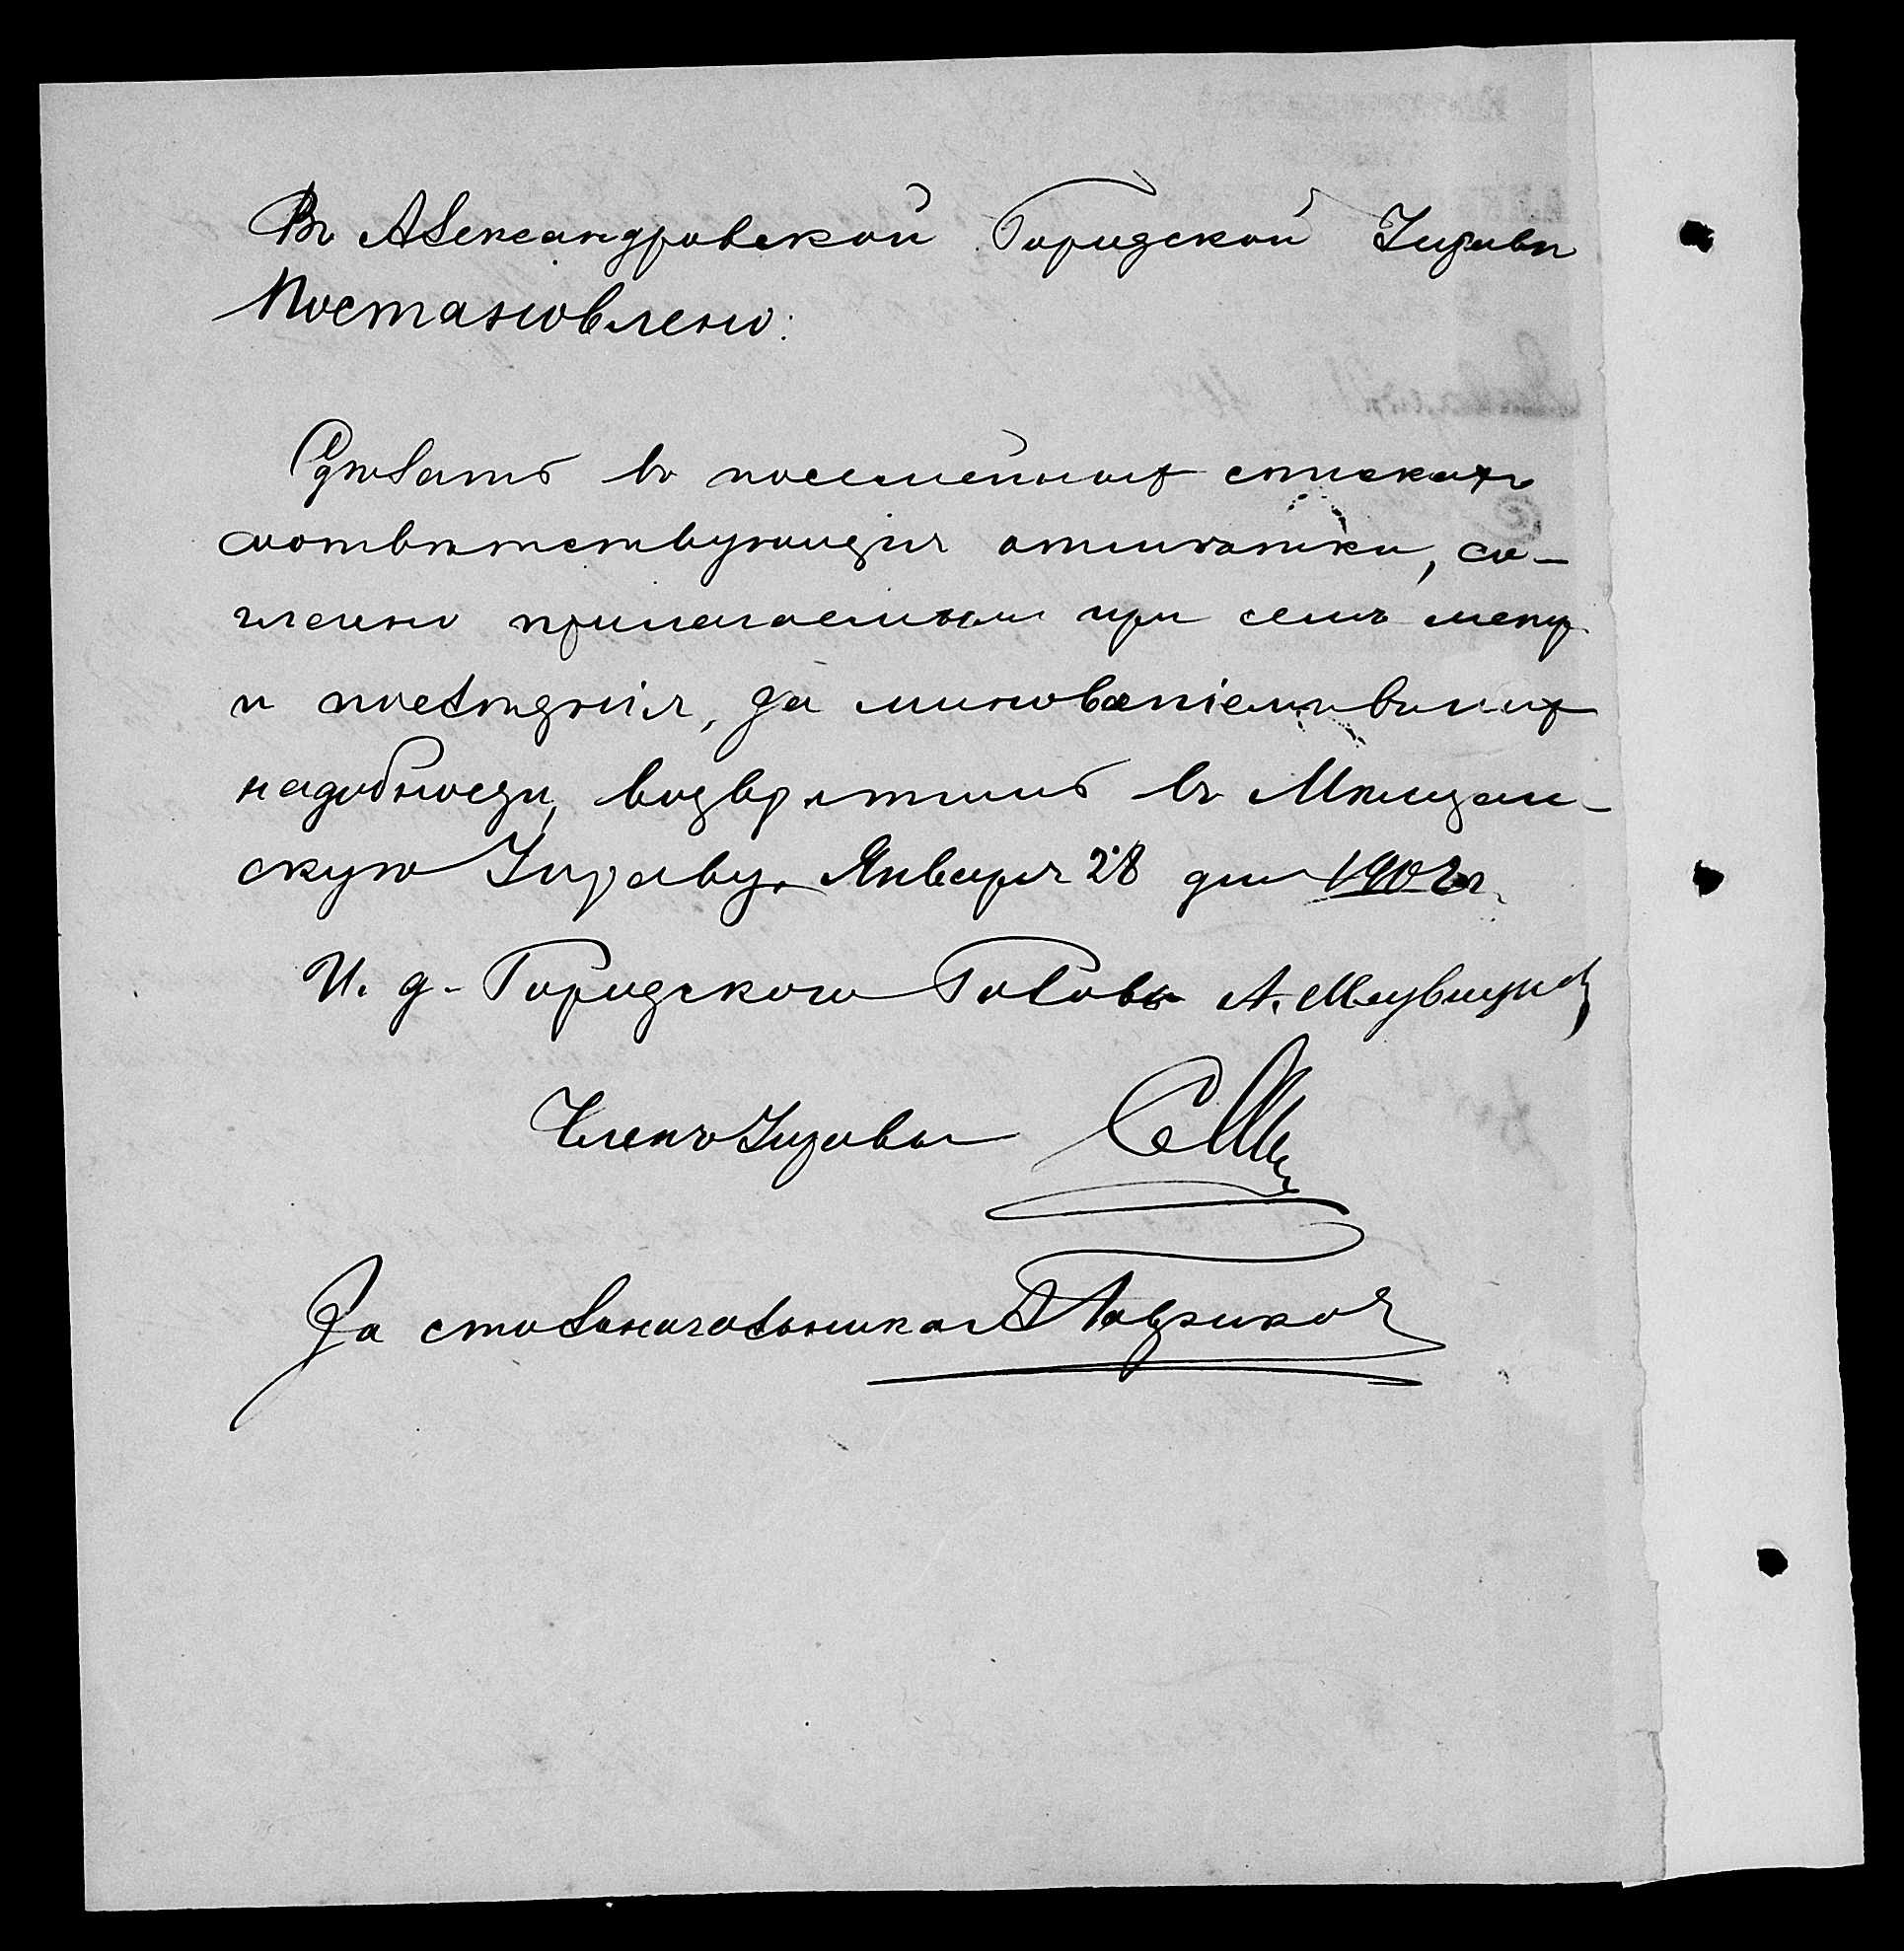 Въ Александровской Городской Управѣ
Постановлено:
Сдѣлать въ посемейныхъ спискахъ
соотвѣтствующія отмѣтки, со-
гласно прилагаемыхъ при семъ
и послѣднія, за минованіемъ въ нихъ
надобности, возвратить въ Мѣщан-
скую Управу. Января 28 дня 1902 г.
И. д. Городского Головы А.
Членъ Управы
За столоначальника